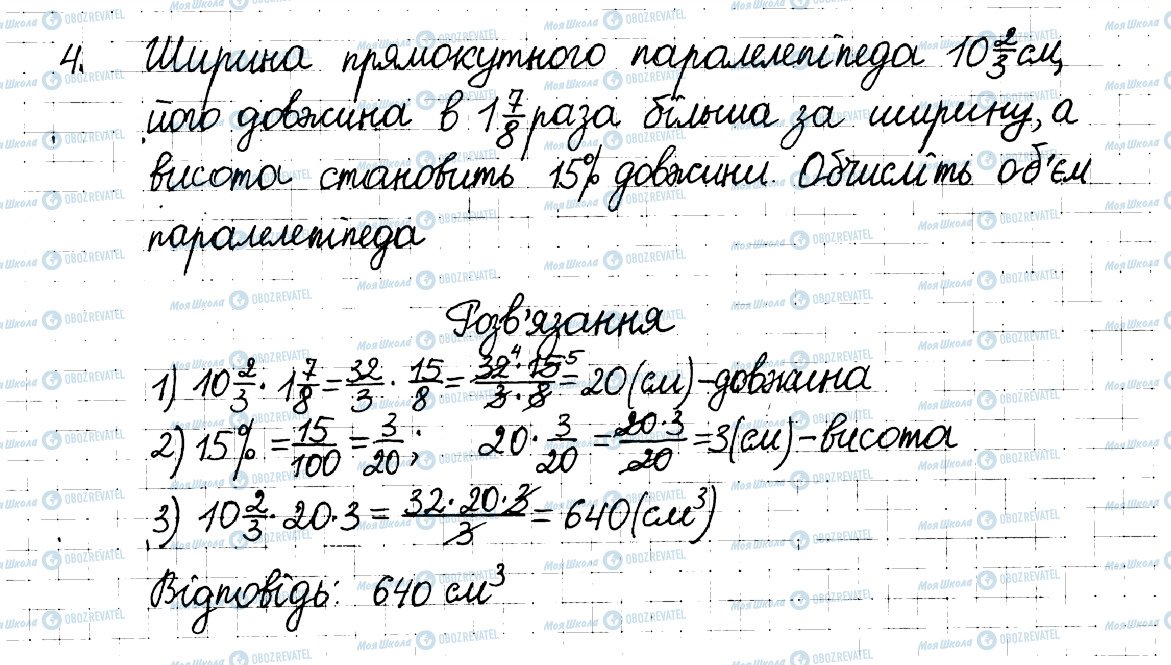 4. Ширина прямокутного паралелепіпеда 10 2/3 см,
його довжина в 1 7/8 раза більша за ширину, а
висота становить 15% довжини. Обчисліть об'єм
паралелепіпеда
Розв'язання
1) 10 2/3 · 1 7/8 = 32/3 · 15/8 = (32⁴ · 15⁵)/(3 · 8) = 20 (см) – довжина
2) 15% = 15/100 = 3/20; 20 · 3/20 = (20 · 3)/20 = 3 (см) – висота
3) 10 2/3 · 20 · 3 = (32 · 20 · 3)/3 = 640 (см³)
Відповідь: 640 см³